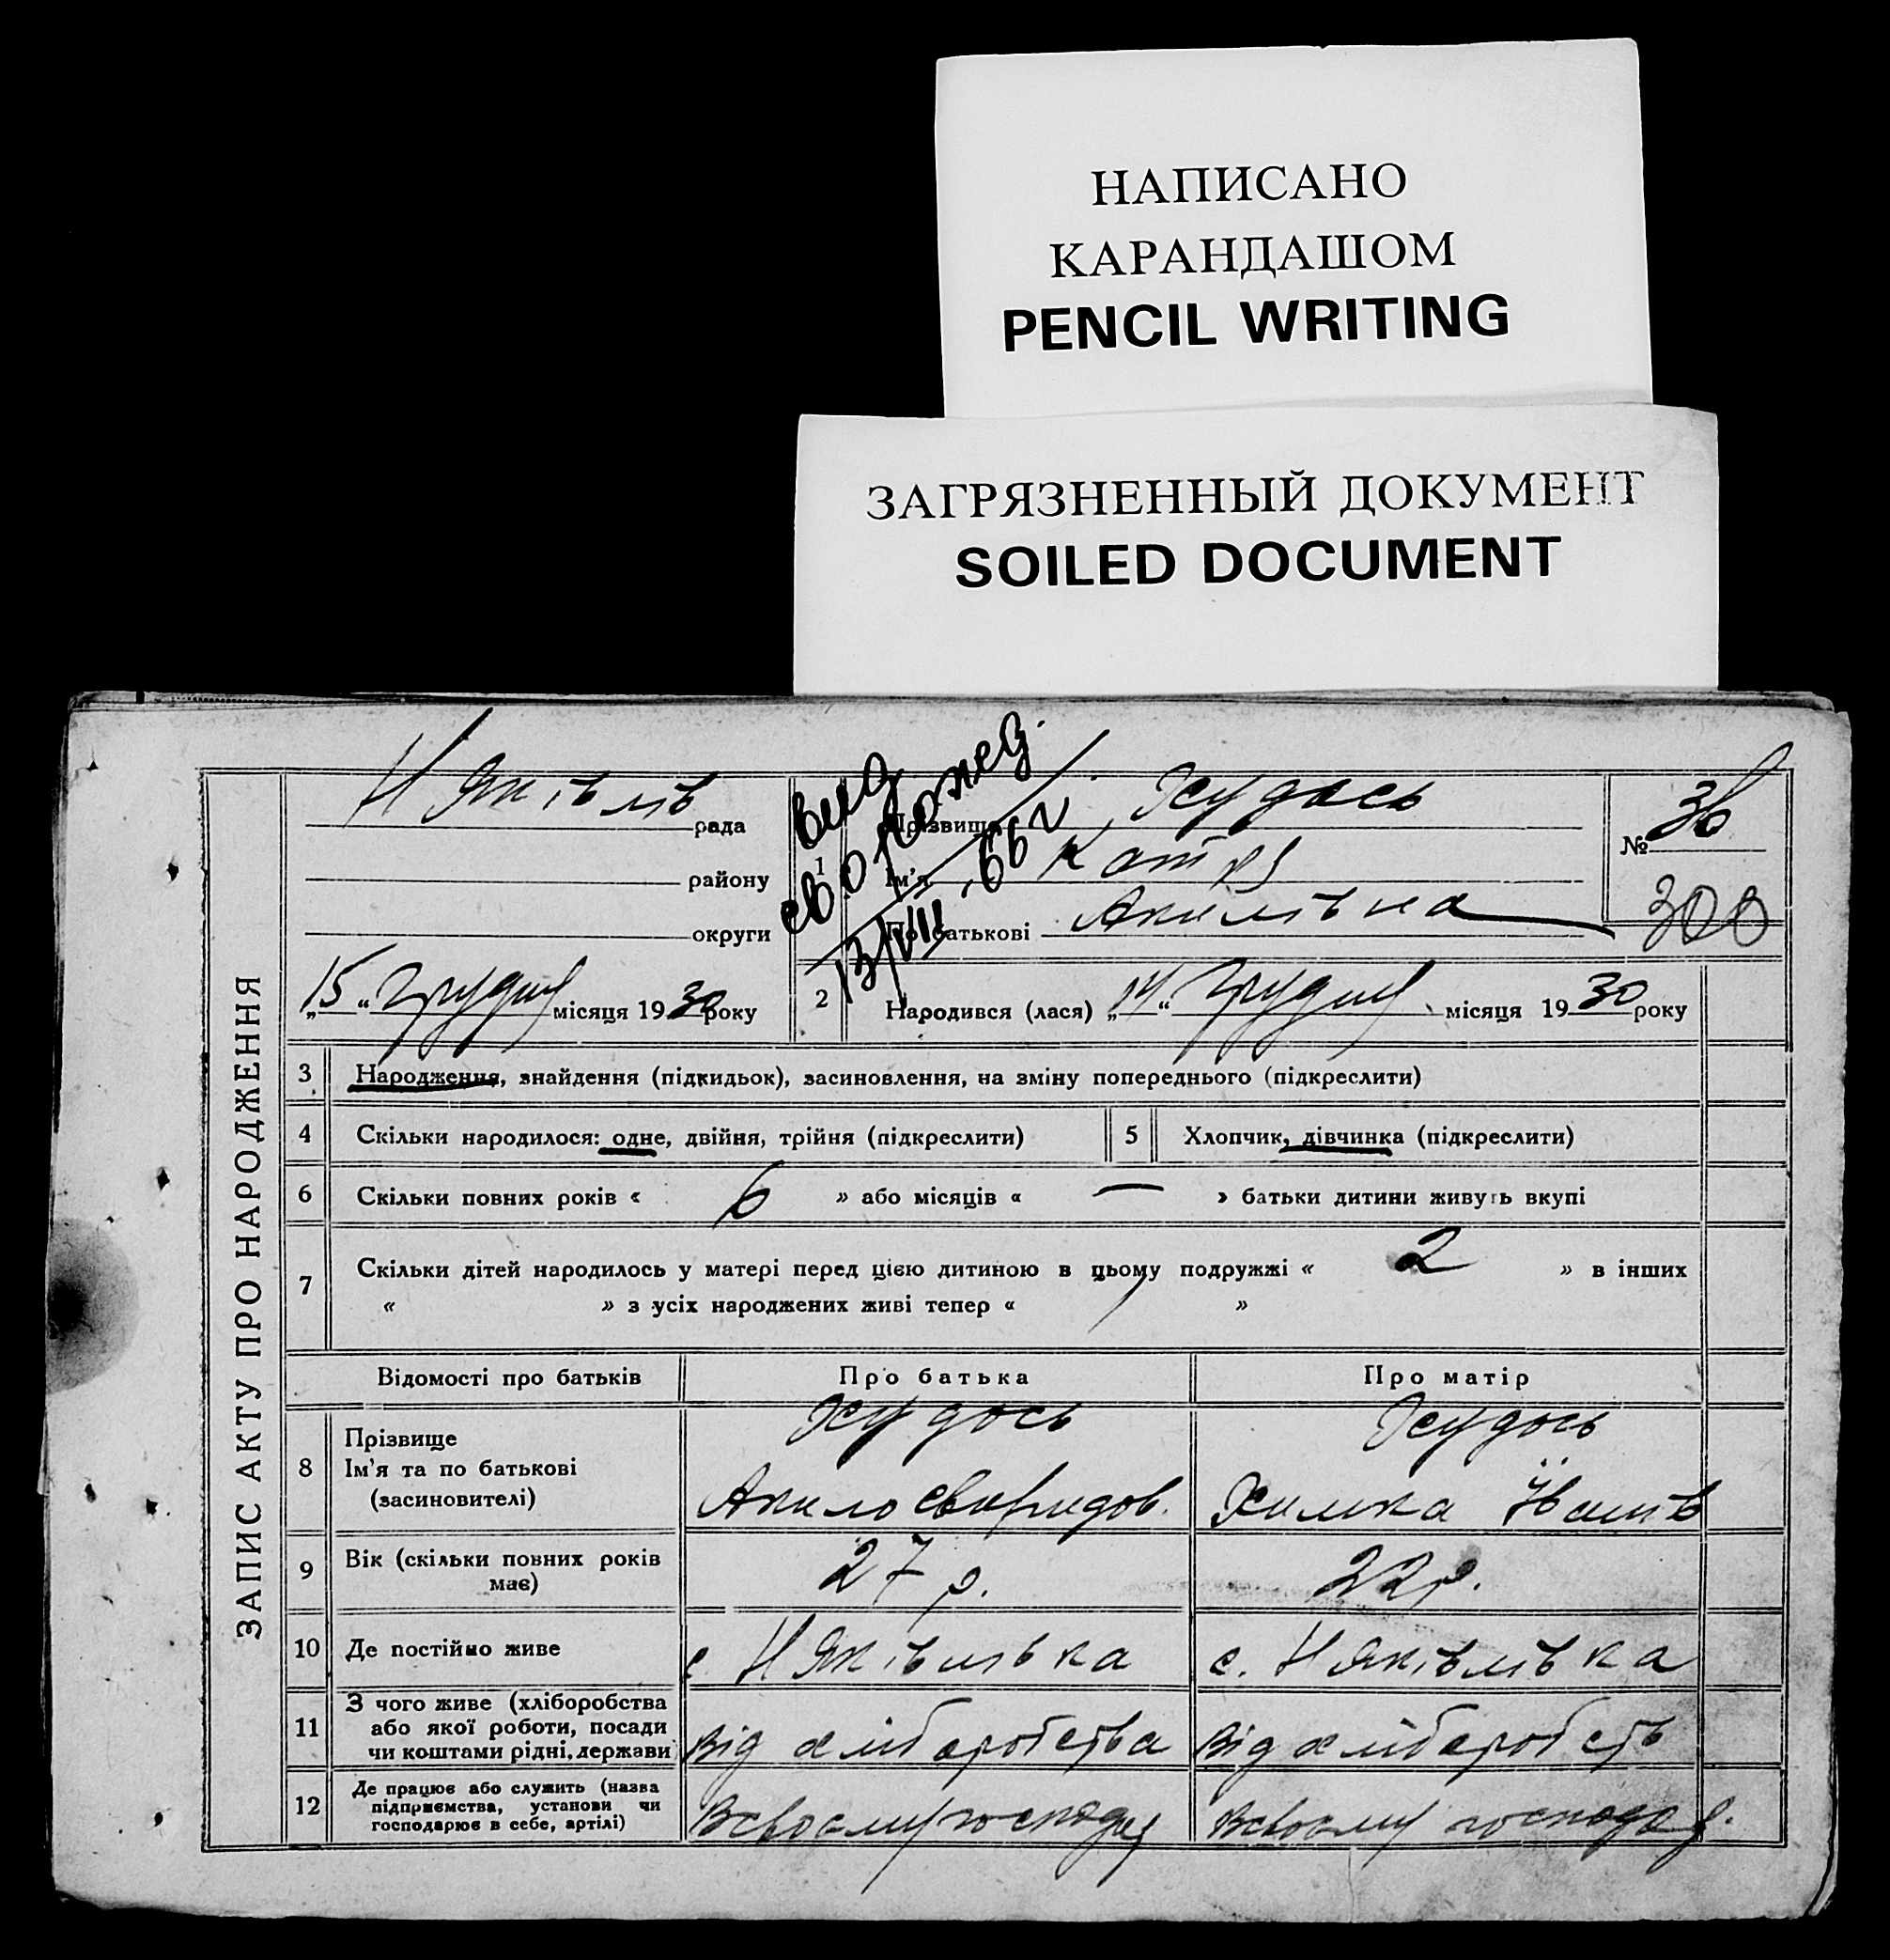 НАПИСАНО
КАРАНДАШОМ
PENCIL WRITING
ЗАГРЯЗНЕННЫЙ ДОКУМЕНТ
SOILED DOCUMENT
ЗАПИС АКТУ ПРО НАРОДЖЕННЯ
Н Яківлів рада
району
округи
„15“ Грудня місяця 1930 року
вид
св. о рожед.
13/VII.66 г
1 Прізвище Худась
Ім'я Катря
По батькові Акилівна
№ 36
300
2 Народився (лася) „14“ Грудня місяця 1930 року
3 Народження, знайдення (підкидьок), засиновлення, на зміну попереднього (підкреслити)
4 Скільки народилося: одне, двійня, трійня (підкреслити)
5 Хлопчик, дівчинка (підкреслити)
6 Скільки повних років « 6 » або місяців « — » батьки дитини живуть вкупі
7 Скільки дітей народилось у матері перед цією дитиною в цьому подружжі « 2 » в інших
« » з усіх народжених живі тепер « »
Відомості про батьків Про батька Про матір
8 Прізвище
Ім'я та по батькові
(засиновителі)
Худось
Акило Свиридов.
Худось
Химка
9 Вік (скільки повних років
має)
27 р.
22 р.
10 Де постійно живе
с. Н Яківлівка
с. Н Яківлівка
11 З чого живе (хліборобства
або якої роботи, посади
чи коштами рідні, держави
Від хліборобства
Від хліборобств
12 Де працює або служить (назва
підприємства, установи чи
господарює в себе, артілі)
В своєму господ
В своєму господ